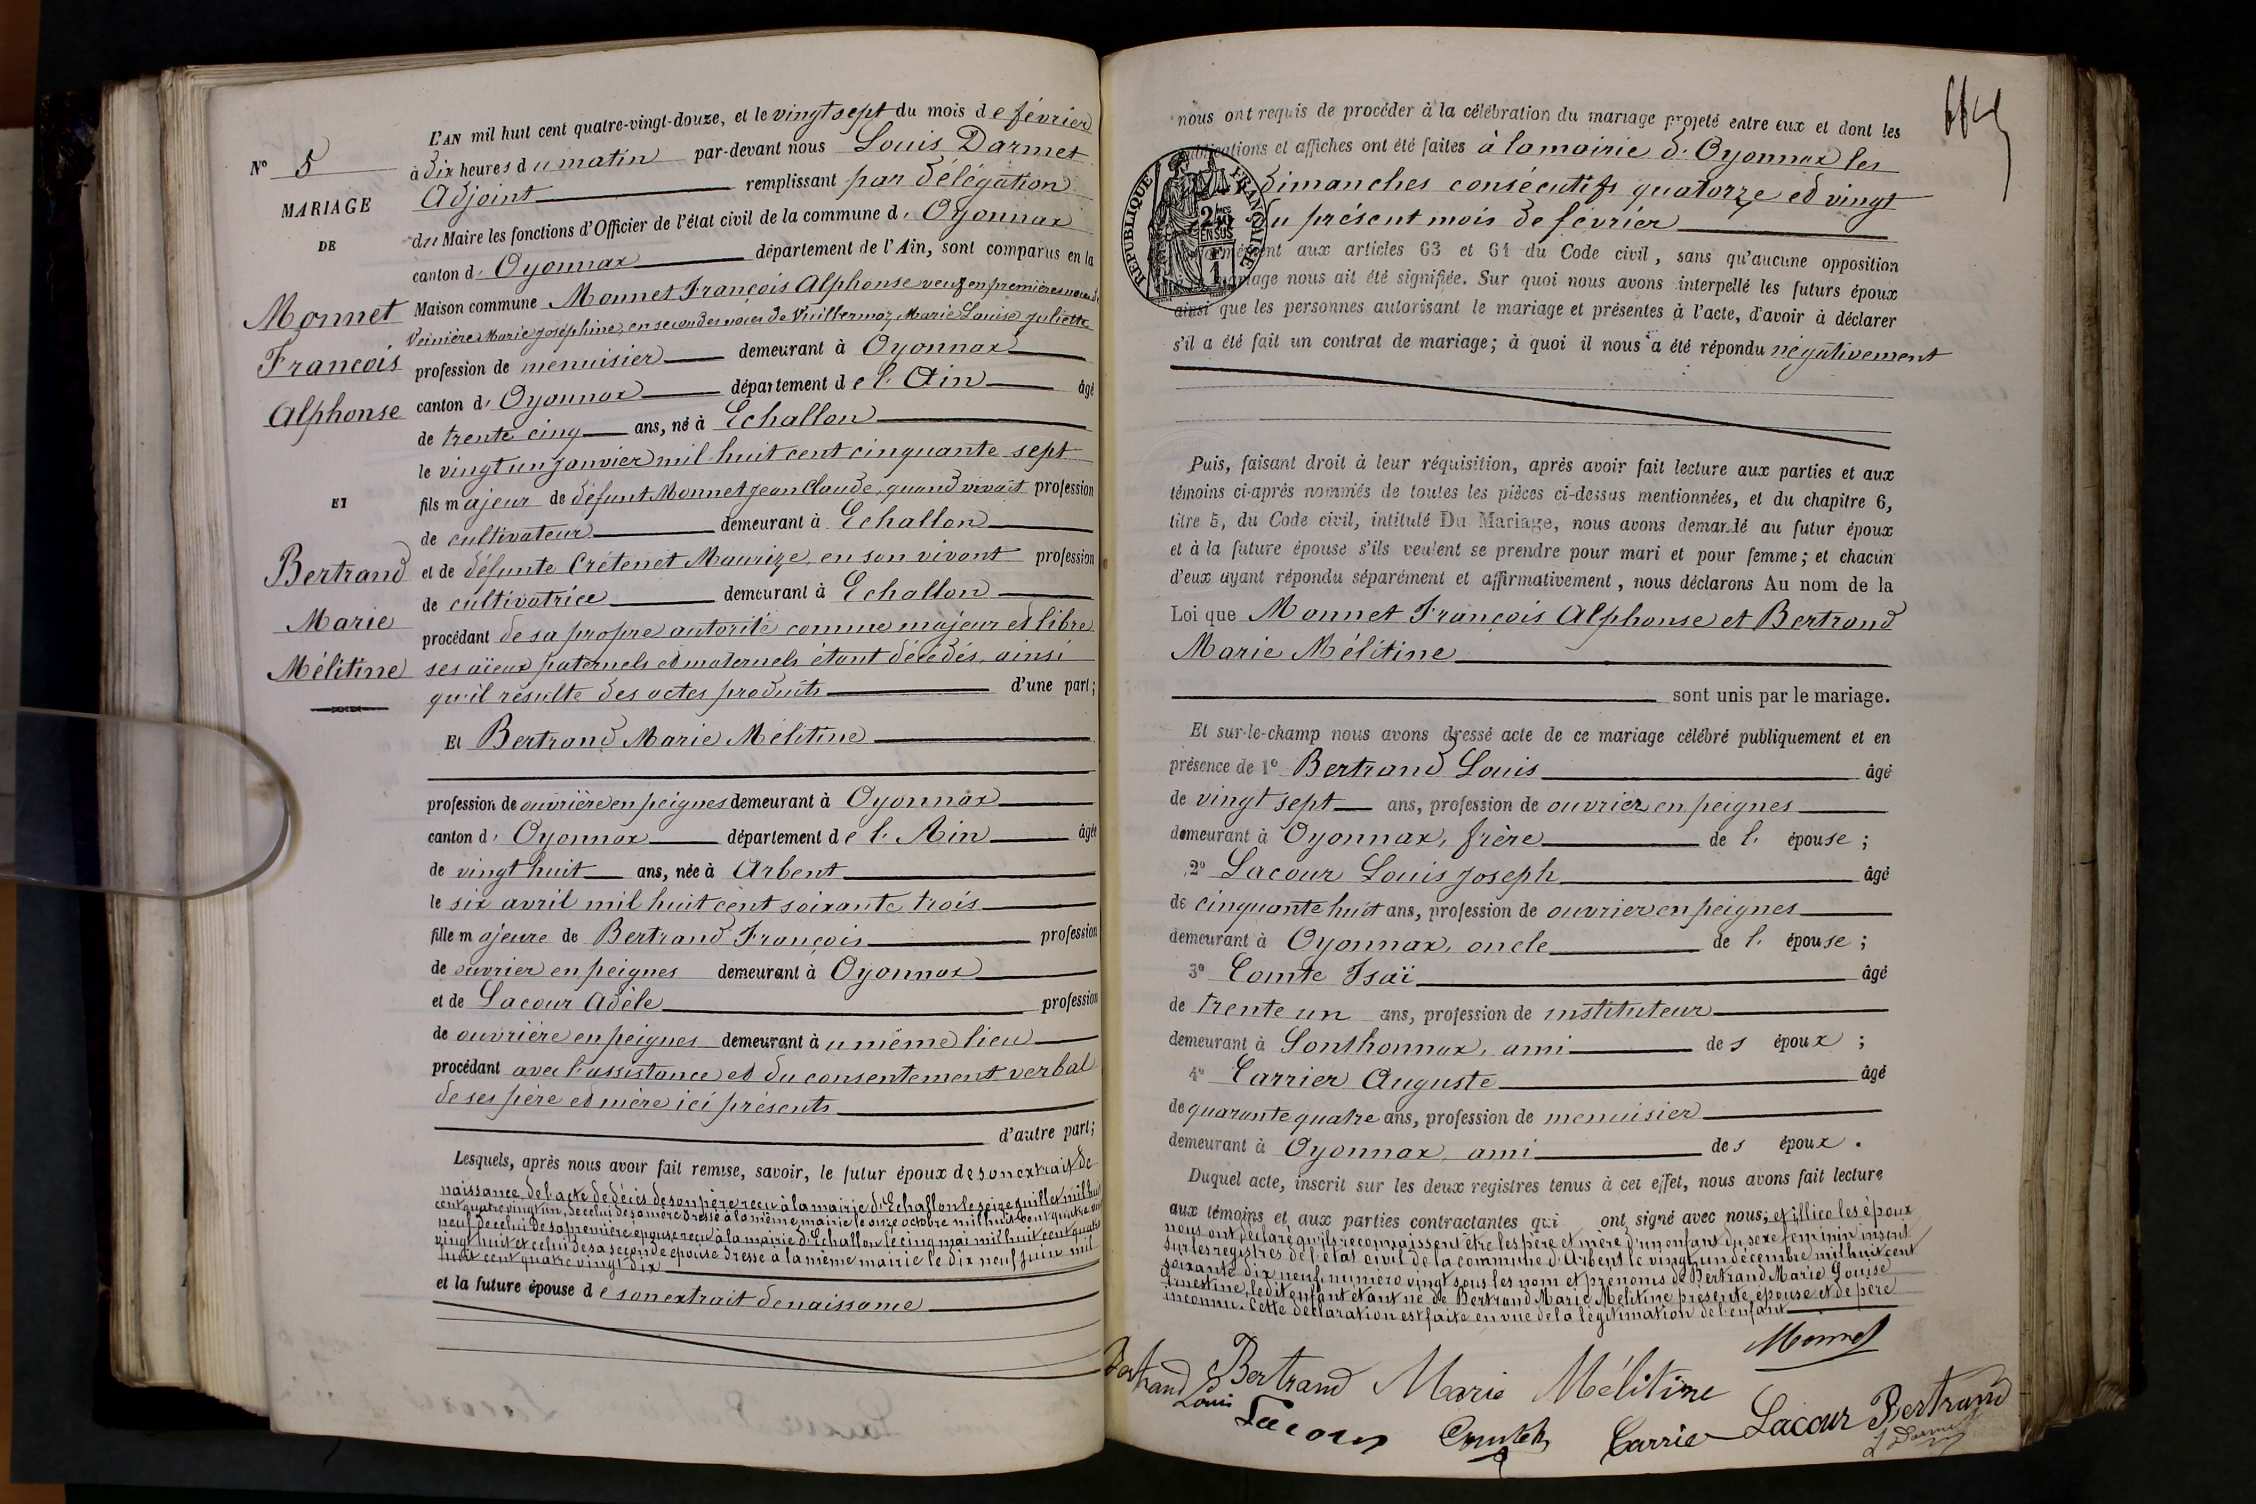 N° 5
MARIAGE
DE
Monnet
François
Alphonse
ET
Bertrand
Marie
Mélitine
L'AN mil huit cent quatre-vingt-douze, et le vingt sept du mois de février
à dix heures du matin par-devant nous Louis Darmet
Adjoint remplissant par délégation
du Maire les fonctions d'Officier de l'état civil de la commune d'Oyonnax
canton d'Oyonnax département de l'Ain, sont comparus en la
Maison commune Monnet François Alphonse veuf en premières noces de
Veinière Marie Joséphine, en secondes noces de Vuillermoz Marie Louise Juliette
profession de menuisier demeurant à Oyonnax
canton d'Oyonnax département de l'Ain âgé
de trente cinq ans, né à Echallon
le vingt un janvier mil huit cent cinquante sept
fils majeur de défunt Monnet Jean Claude, quand vivait profession
de cultivateur demeurant à Echallon
et de défunte Crétenet Maurize, en son vivant profession
de cultivatrice demeurant à Echallon
procédant de sa propre autorité comme majeur et libre
ses aïeux paternels et maternels étant décédés, ainsi
qu'il résulte des actes produits d'une part;
Et Bertrand Marie Mélitine
profession de ouvrière en peignes demeurant à Oyonnax
canton d'Oyonnax département de l'Ain âgée
de vingt huit ans, née à Arbent
le six avril mil huit cent soixante trois
fille majeure de Bertrand François profession
de ouvrier en peignes demeurant à Oyonnax
et de Lacour Adèle profession
de ouvrière en peignes demeurant à u même lieu
procédant avec l'assistance et du consentement verbal
de ses père et mère ici présents
d'autre part;
Lesquels, après nous avoir fait remise, savoir, le futur époux de son extrait de
naissance, de l'acte de décès de son père reçu à la mairie d'Echallon le seize juillet mil huit
cent quatre vingt un, de celui de sa mère dressé à la même mairie le onze octobre mil huit cent quatre vingt
neuf, de celui de sa première épouse reçu à la mairie d'Echallon le cinq mai mil huit cent quatre
vingt huit et celui de sa seconde épouse dressé à la même mairie le dix neuf juin mil
huit cent quatre vingt dix
et la future épouse de son extrait de naissance
nous ont requis de procéder à la célébration du mariage projeté entre eux et dont les
publications et affiches ont été faites à la mairie d'Oyonnax les
dimanches consécutifs quatorze et vingt
du présent mois de février
aux articles 63 et 64 du Code civil, sans qu'aucune opposition
mariage nous ait été signifiée. Sur quoi nous avons interpellé les futurs époux
ainsi que les personnes autorisant le mariage et présentes à l'acte, d'avoir à déclarer
s'il a été fait un contrat de mariage; à quoi il nous a été répondu négativement
RÉPUBLIQUE FRANÇAISE
2/10
EN SUS
1
Puis, faisant droit à leur réquisition, après avoir fait lecture aux parties et aux
témoins ci-après nommés de toutes les pièces ci-dessus mentionnées, et du chapitre 6,
titre 5, du Code civil, intitulé Du Mariage, nous avons demandé au futur époux
et à la future épouse s'ils veulent se prendre pour mari et pour femme; et chacun
d'eux ayant répondu séparément et affirmativement, nous déclarons Au nom de la
Loi que Monnet François Alphonse et Bertrand
Marie Mélitine
sont unis par le mariage.
Et sur-le-champ nous avons dressé acte de ce mariage célébré publiquement et en
présence de 1° Bertrand Louis âgé
de vingt sept ans, profession de ouvrier en peignes
demeurant à Oyonnax, frère de l'épouse;
2° Lacour Louis Joseph âgé
de cinquante huit ans, profession de ouvrier en peignes
demeurant à Oyonnax, oncle de l'épouse;
3° Comte Isaï âgé
de trente un ans, profession de instituteur
demeurant à Sonthonnax, ami des époux;
4° Carrier Auguste âgé
de quarante quatre ans, profession de menuisier
demeurant à Oyonnax, ami des époux.
Duquel acte, inscrit sur les deux registres tenus à cet effet, nous avons fait lecture
aux témoins et aux parties contractantes qui ont signé avec nous; et illico les époux
nous ont déclaré qu'ils reconnaissent être les père et mère d'un enfant du sexe féminin inscrit
sur les registres de l'état civil de la commune d'Arbent le vingt un décembre mil huit cent
soixante dix neuf, numéro vingt sous les nom et prénoms de Bertrand Marie Louise
Ernestine, ledit enfant étant né de Bertrand Marie Mélitine présente épouse et de père
inconnu. Cette déclaration est faite en vue de la légitimation de l'enfant
Monnet
Bertrand Louis
Bertrand Marie Mélitine
Lacour
Carrier
Lacour
Bertrand
L Darmet